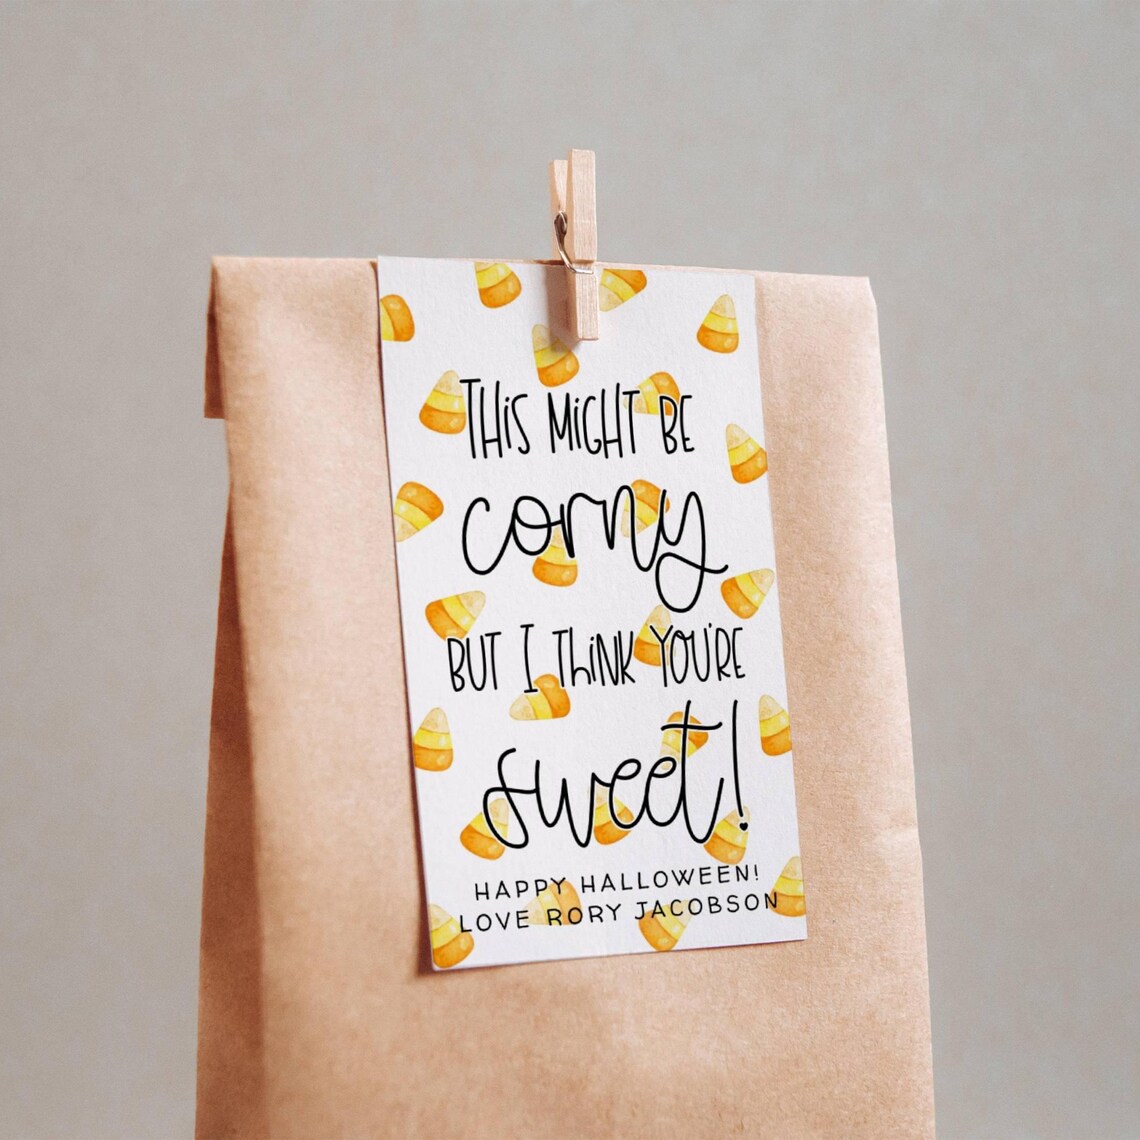 THiS MiGHT BE
corny
BUT I THiNK YOU'RE
sweet!
HAPPY HALLOWEEN!
LOVE RORY JACOBSON